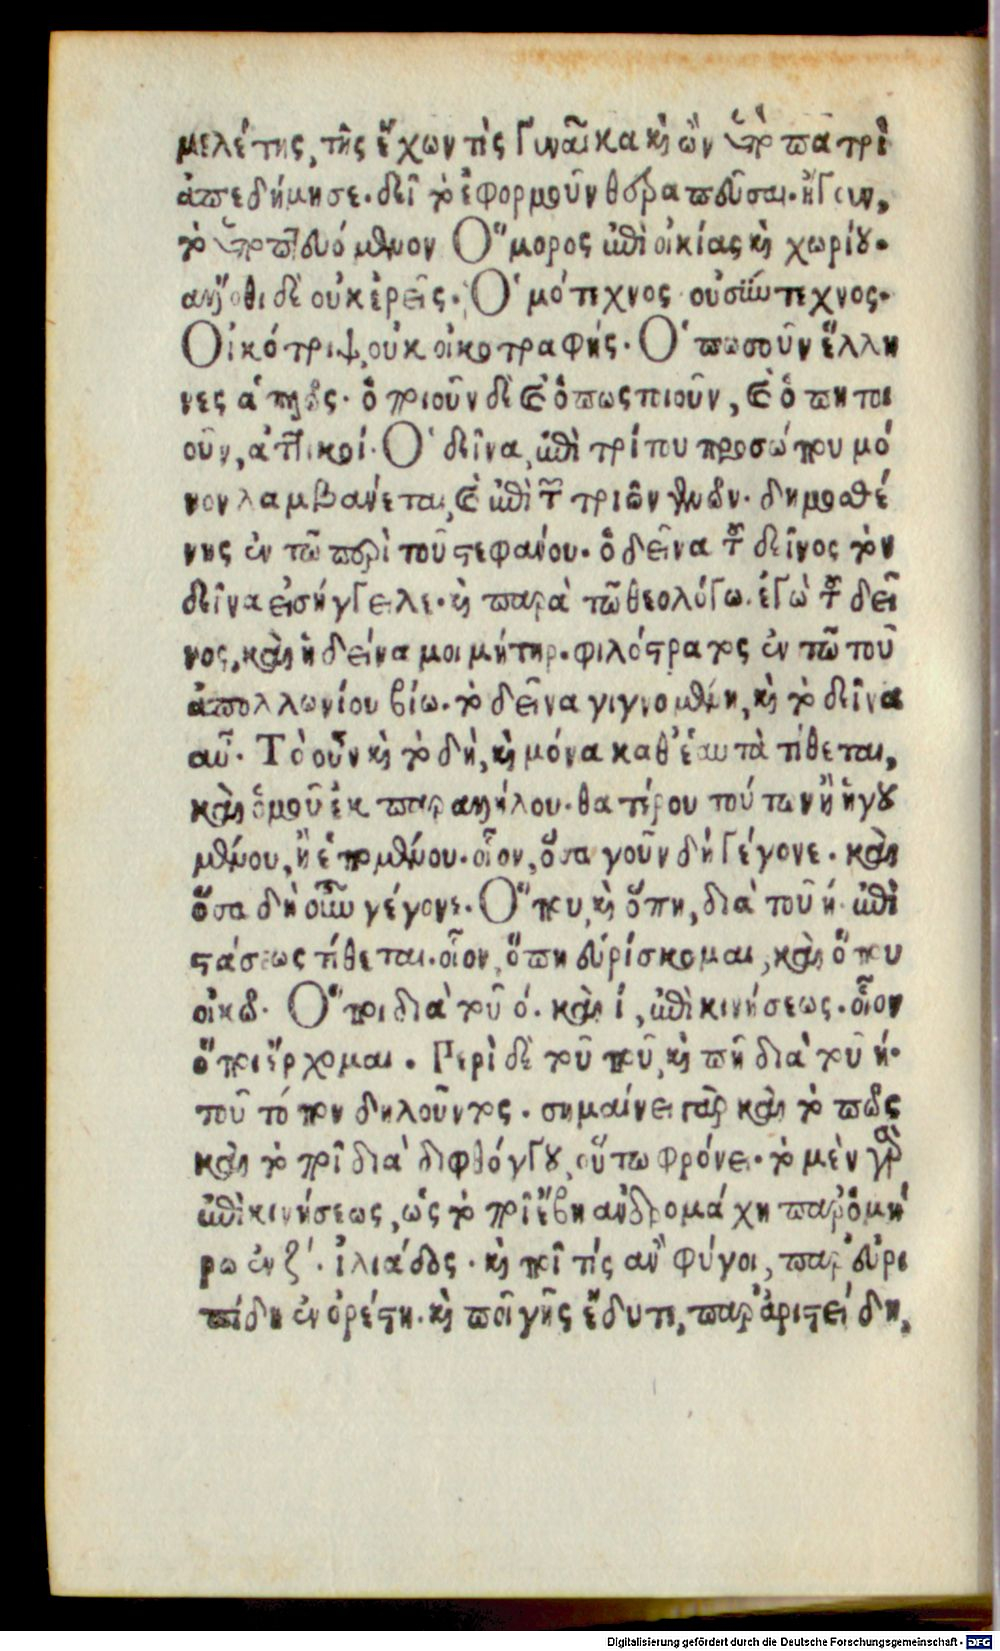 μελέτης, τῆς ἔχων τὶς Γυναῖκα κὴ ὢν ὑπὸ πατρὶ
ἀπεδήμησε. δεῖ τὸ ἐφορμοῦν θεραπεῦσαι. ἤγουν,
τὸ ὑποπτευόμενον Ὅμορος ἐπὶ οἰκίας κὴ χωρίου.
ἄλλοθι δὲ οὐκ ἐρεῖς. Ὁμότεχνος οὐ σύντεχνος.
Οἰκότριψ, οὐκ οἰκοτραφής. Ὁπωσοῦν ἕλλη
νες ἁπλῶς. ὁτιοῦν δὲ καὶ ὅπως ποιοῦν, καὶ ὅπη ποι
οῦν, ἀττικοί. Ὁ δεῖνα, ἐπὶ τρίτου προσώπου μό
νον λαμβάνεται, καὶ ἐπὶ τῶν τριῶν γενῶν. δημοσθέ
νης ἐν τῶ περὶ τοῦ στεφάνου. ὁ δεῖνα τοῦ δεῖνος τὸν
δεῖνα εἰσήγγειλε. κὴ παρὰ τῶ θεολόγω. ἐγὼ τοῦ δεῖ
νος, καὶ ἡ δείνα μοι μήτηρ. φιλόστρατος ἐν τῶ τοῦ
ἀπολλωνίου βίω. τὸ δεῖνα γιγνομένη, κὴ τὸ δεῖνα
αὖ. Τὸ οὖν κὴ τὸ δὴ, κὴ μόνα καθ' ἑαυτὰ τίθεται,
καὶ ὁμοῦ ἐκ παραλλήλου. θατέρου τούτων ἢ ἡγου
μένου, ἢ ἑπομένου. οἷον, ὅσα γοῦν δὴ γέγονε. καὶ
ὅσα δὴ οὖν γέγονε. Ὅπου, κὴ ὅπη, διὰ τοῦ ή. ἐπὶ
στάσεως τίθεται. οἷον, ὅπη εὑρίσκομαι, καὶ ὅπου
οἰκῶ. Ὅποι διὰ τοῦ ό. καὶ ί, ἐπὶ κινήσεως. οἷον
ὅποι ἔρχομαι. Περὶ δὲ τοῦ ποῦ, κὴ πῆ διὰ τοῦ ή.
τοῦ τόπον δηλοῦντος. σημαίνει γὰρ καὶ τὸ πῶς
καὶ τὸ ποῖ διὰ διφθόγγου, οὕτω φρόνει. τὸ μὲν γὰρ
ἐπὶ κινήσεως, ὡς τὸ ποῖ ἔβη ἀνδρομάχη παρ' ὁμή
ρω ἐν ζ'. ἰλιάδος. κὴ ποῖ τίς ἂν φύγοι, παρ' εὐρι
πίδη ἐν ὀρέστη. κὴ ποῖ γῆς ἔδυτε, παρ' ἀριστείδη,
Digitalisierung gefördert durch die Deutsche Forschungsgemeinschaft - DFG